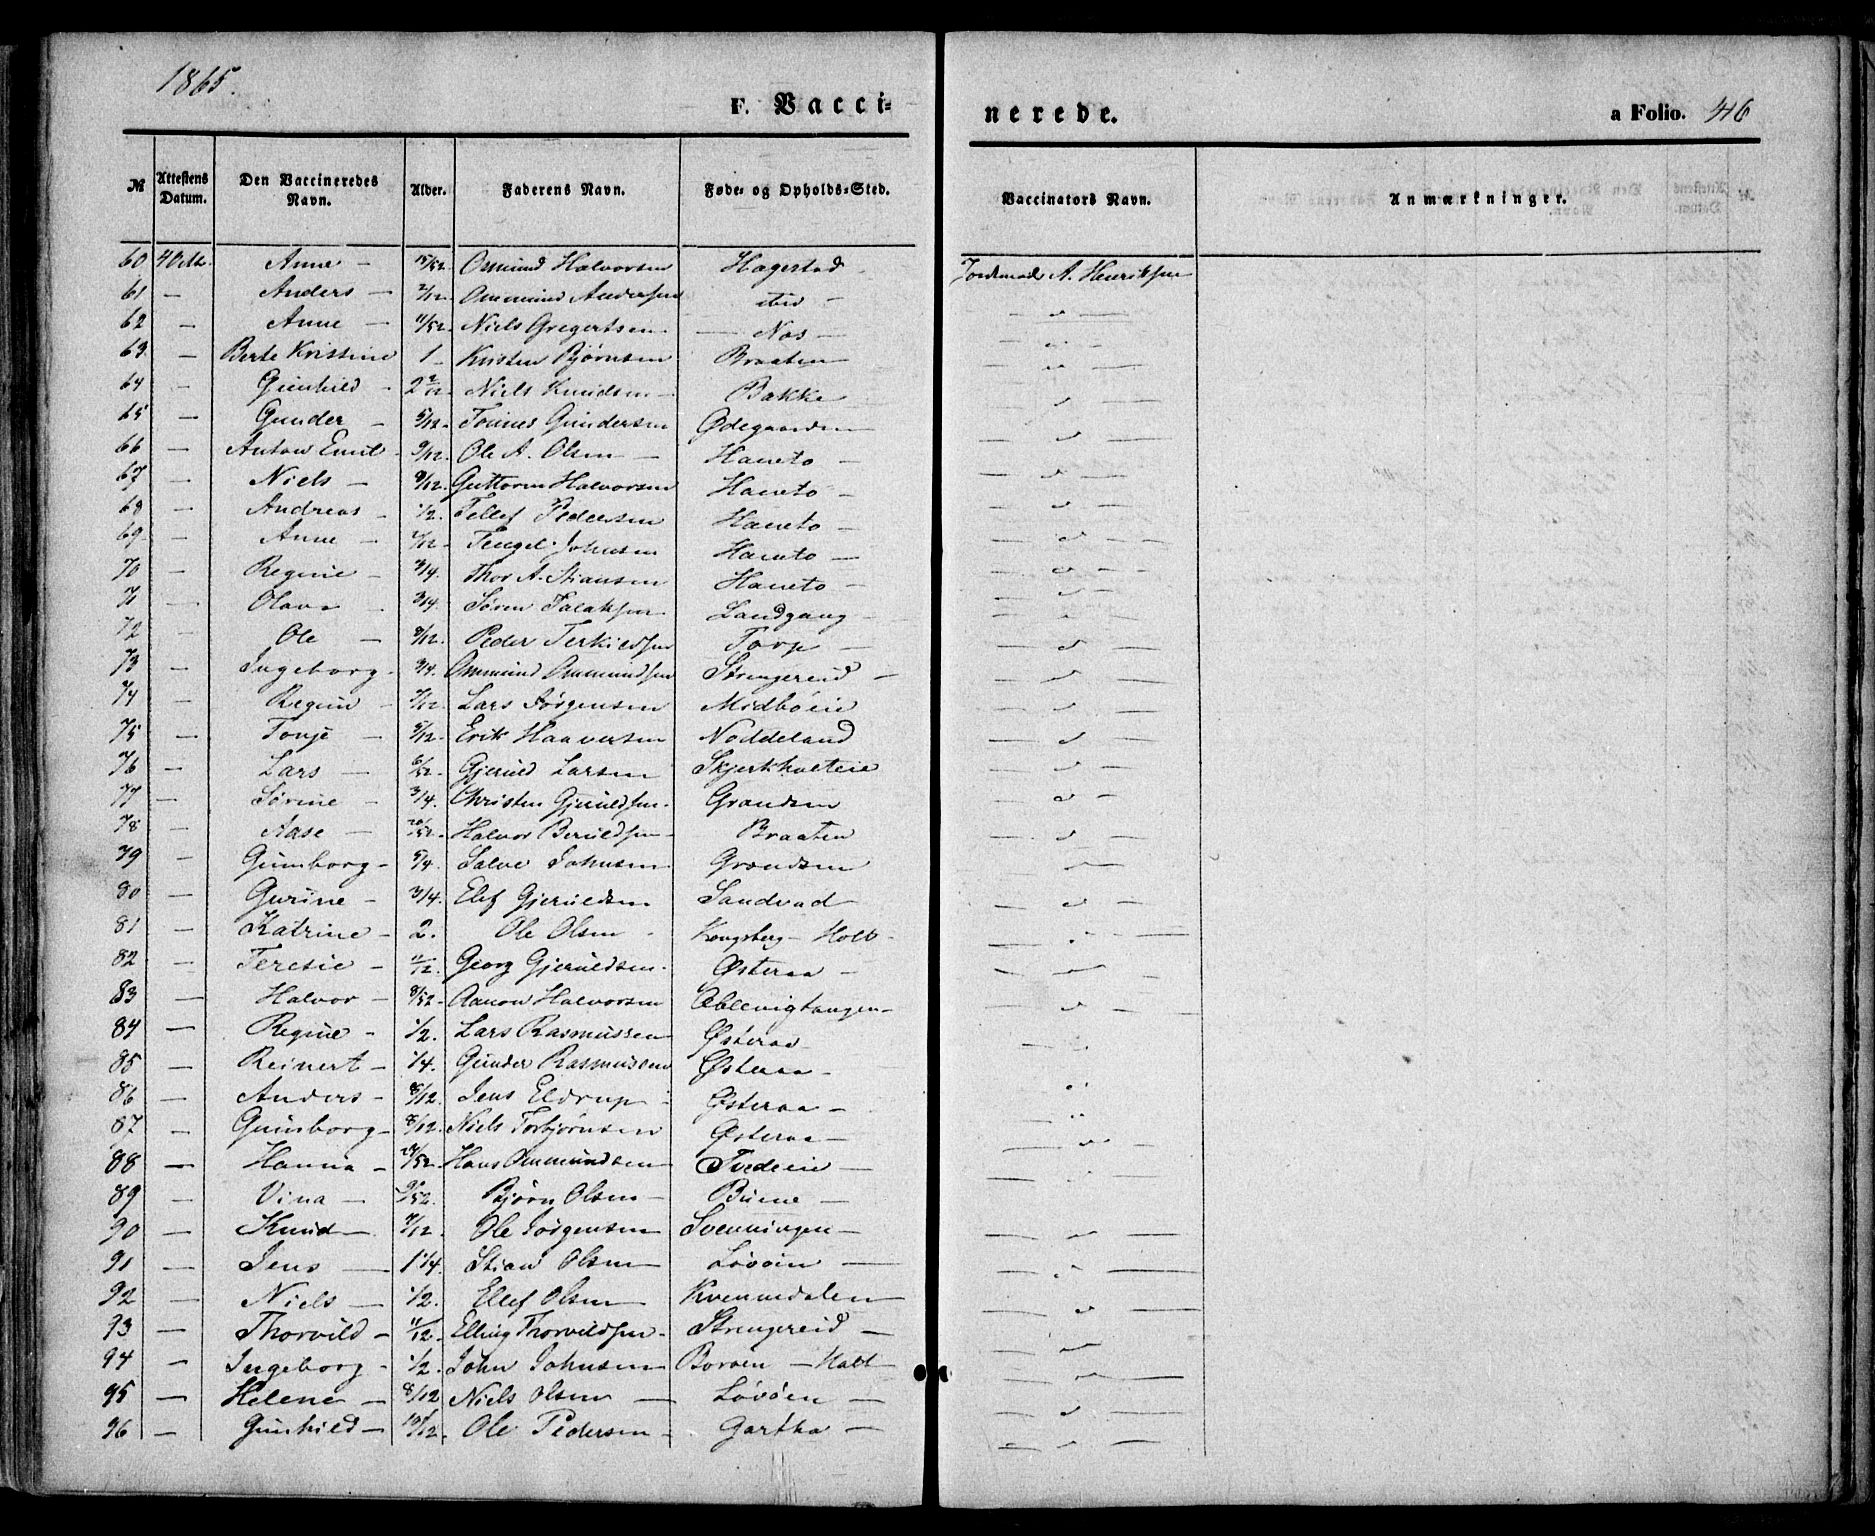 1865.
F. Vaccinerede.
a Folio. 46
№ Attestens Datum. Den Vaccineredes Navn. Alder. Faderens Navn. Føde- og Opholds-Sted. Vaccinators Navn. Anmærkninger.
60 4 Octb. Anne – 15/52. Osmund Halvorsen Hagestad – Jordmod. A. Henriksen
61 – Anders – 2/12. Ommund Andersen
62 – Anne – 11/52. Niels Gregertsen – Nøs –
63 – Berte Kristine 1 – Kristen Bjørnsen Braaten
64 – Gunhild – Niels Knudsen – Bakke
65 – Gunder – 5/12. Tønnes Gundersen Ødegaarden
66 – Anton Emil – 9/12. Ole A. Olsen – Haneto –
67 – Niels – 9/12. Guttorm Halvorsen Haneto –
68 – Andreas – 1/2. Tellef Pedersen Haneto –
69 – Anne – Tengel Johnsen Haneto –
70 – Regine – 3/4. Thor A. Stiansen Haneto –
71 – Olava – 3/4. Søren Falaksen Landgang –
72 – Ole – 9/12. Peder Terkildsen Torp –
73 – Ingeborg – 3/4. Ommund Ommundsen Strengereid –
74 – Regine – 7/12. Lars Jørgensen Midbøeie
75 – Tonje – 5/12. Erik Haaversen Noddeland
76 – Lars – 6/52. Gjeruld Larsen Skjerkholteie
77 – Sørine – 3/4. Christen Gjeruldsen – Grændsen
78 – Aase – 20/52. Halvor Beruldsen – Braaten
79 – Gunborg – 5/4. Salve Johnsen Grændsen
80 – Gurine – 3/4. Elef Gjeruldsen Sandvad –
81 – Katrine – 2. Ole Olsen – Kongsberg – Holt –
82 – Teresie – 11/12. Georg Gjeruldsen – Østeraa –
83 – Halvor – 8/52. Aanon Halvorsen Æblevigtangen –
84 – Regine – 1/2. Lars Rasmussen Østeraa –
85 – Reinert – 1/4. Gunder Rasmussen Østeraa –
86 – Anders – 8/12. Jens Eldrup – Østeraa –
87 – Gunborg – 8/12. Niels Torbjørnsen Østeraa –
88 – Hanna – 24/52. Hans Ommundsen Tvedeeie –
89 – Vina – 9/52. Bjørn Olsen – Buene –
90 – Knud – 7/12. Ole Jørgensen Svenningen –
91 – Jens – 1 1/4. Stian Olsen Løvøen –
92 – Niels – 1/2. Ellef Olsen Kvennedalen
93 – Thorvild – 11/12. Elling Thorvildsen – Strengereid –
94 – Ingeborg – 1/2. John Johnsen Borøen – Holt
95 – Helene – 8/12 Niels Olsen – Løvøen –
96 – Gunhild – 10/12 Ole Pedersen – Gartha –